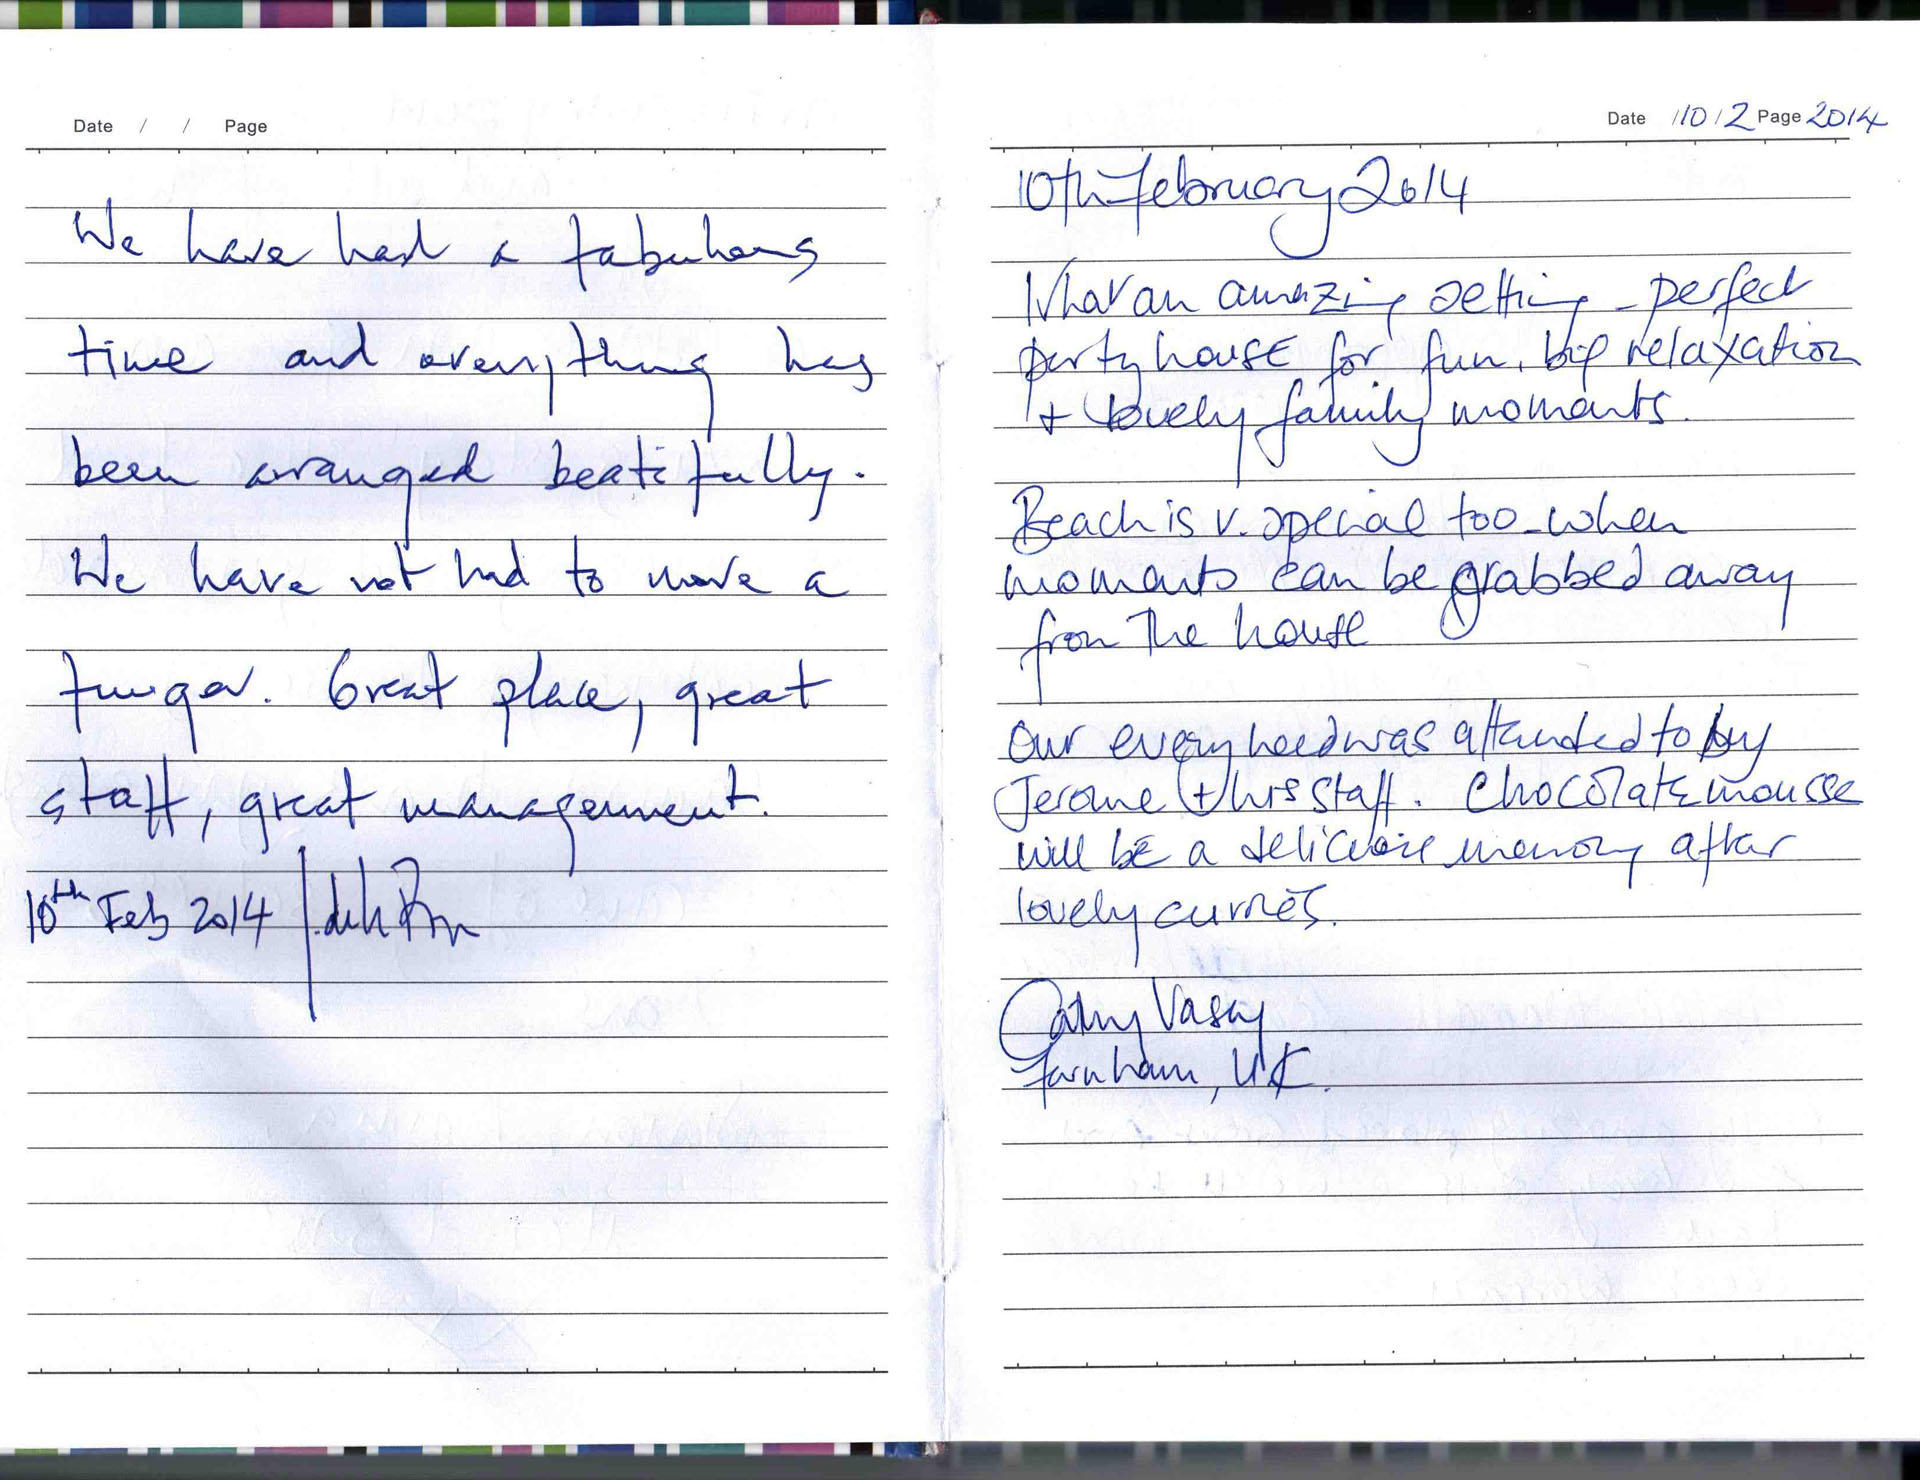 Date / / Page
We have had a fabulous
time and everything has
been arranged beatifully.
We have not had to move a
finger. Great place, great
staff, great management.
10th Feb 2014
Date 10/2 Page 2014
10th February 2014
What an amazing setting - perfect
party house for fun, big relaxation
+ lovely family moments.
Beach is v. special too - when
moments can be grabbed away
from the house
Our every need was attended to by
Jerome + his staff. Chocolate mousse
will be a memory after
lovely curries.
Cathy
Farnham, UK.